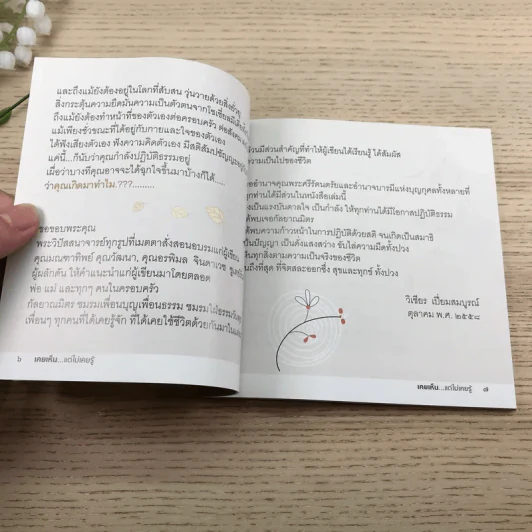 และถึงแม้ยังต้องอยู่ในโลกที่สับสน วุ่นวายด้วยสิ่งยั่วยุ
สิ่งกระตุ้นความยึดมั่นความเป็นตัวตนจากโซเชี่ยลมีเดีย
ถึงแม้ยังต้องทำหน้าที่ของตัวเองต่อครอบครัว ต่อสังคม
แม้เพียงชั่วขณะที่ได้อยู่กับกายและใจของตัวเอง
ได้ฟังเสียงตัวเอง ฟังความคิดตัวเอง มีสติสัมปชัญญะอยู่
แค่นี้...ก็นับว่าคุณกำลังปฏิบัติธรรมอยู่
เผื่อว่าบางทีคุณอาจจะได้ฉุกใจขึ้นมาบ้างก็ได้.....
ว่าคุณเกิดมาทำไม.???.........
ขอขอบพระคุณ
พระวิปัสสนาจารย์ทุกรูปที่เมตตาสั่งสอนอบรมแก่ผู้เขียน
คุณมณฑาทิพย์ คุณวัฒนา, คุณอรพิมล จินดาเวช
ผู้ผลักดัน ให้คำแนะนำแก่ผู้เขียนมาโดยตลอด
พ่อ แม่ และทุกๆ คนในครอบครัว
กัลยาณมิตร ชมรมเพื่อนบุญเพื่อนธรรม
เพื่อนๆ ทุกคนที่ได้เคยรู้จัก ที่ได้เคยใช้ชีวิตด้วยกันมาในแต่ละ
๖ เคยเห็น...แต่ไม่เคยรู้
ส่วนมีส่วนสำคัญที่ทำให้ผู้เขียนได้เรียนรู้ ได้สัมผัส
ความเป็นไปของชีวิต
ขออำนาจคุณพระศรีรัตนตรัยและอำนาจบารมีแห่งบุญกุศลทั้งหลายที่
ทุกท่านได้มีส่วนในหนังสือเล่มนี้
เป็นแรงบันดาลใจ เป็นกำลัง ให้ทุกท่านได้มีโอกาสปฏิบัติธรรม
ได้พบเจอกัลยาณมิตร
ได้พบความก้าวหน้าในการปฏิบัติด้วยสติ จนเกิดเป็นสมาธิ
เป็นปัญญา เป็นดั่งแสงสว่าง ขับไล่ความมืดทั้งปวง
ทุกสิ่งตามความเป็นจริงของชีวิต
ถึงที่สุด ที่จิตสละออกซึ่ง สุขและทุกข์ ทั้งปวง
วิเชียร เปี่ยมสมบูรณ์
ตุลาคม พ.ศ. ๒๕๕๘
เคยเห็น...แต่ไม่เคยรู้ ๗